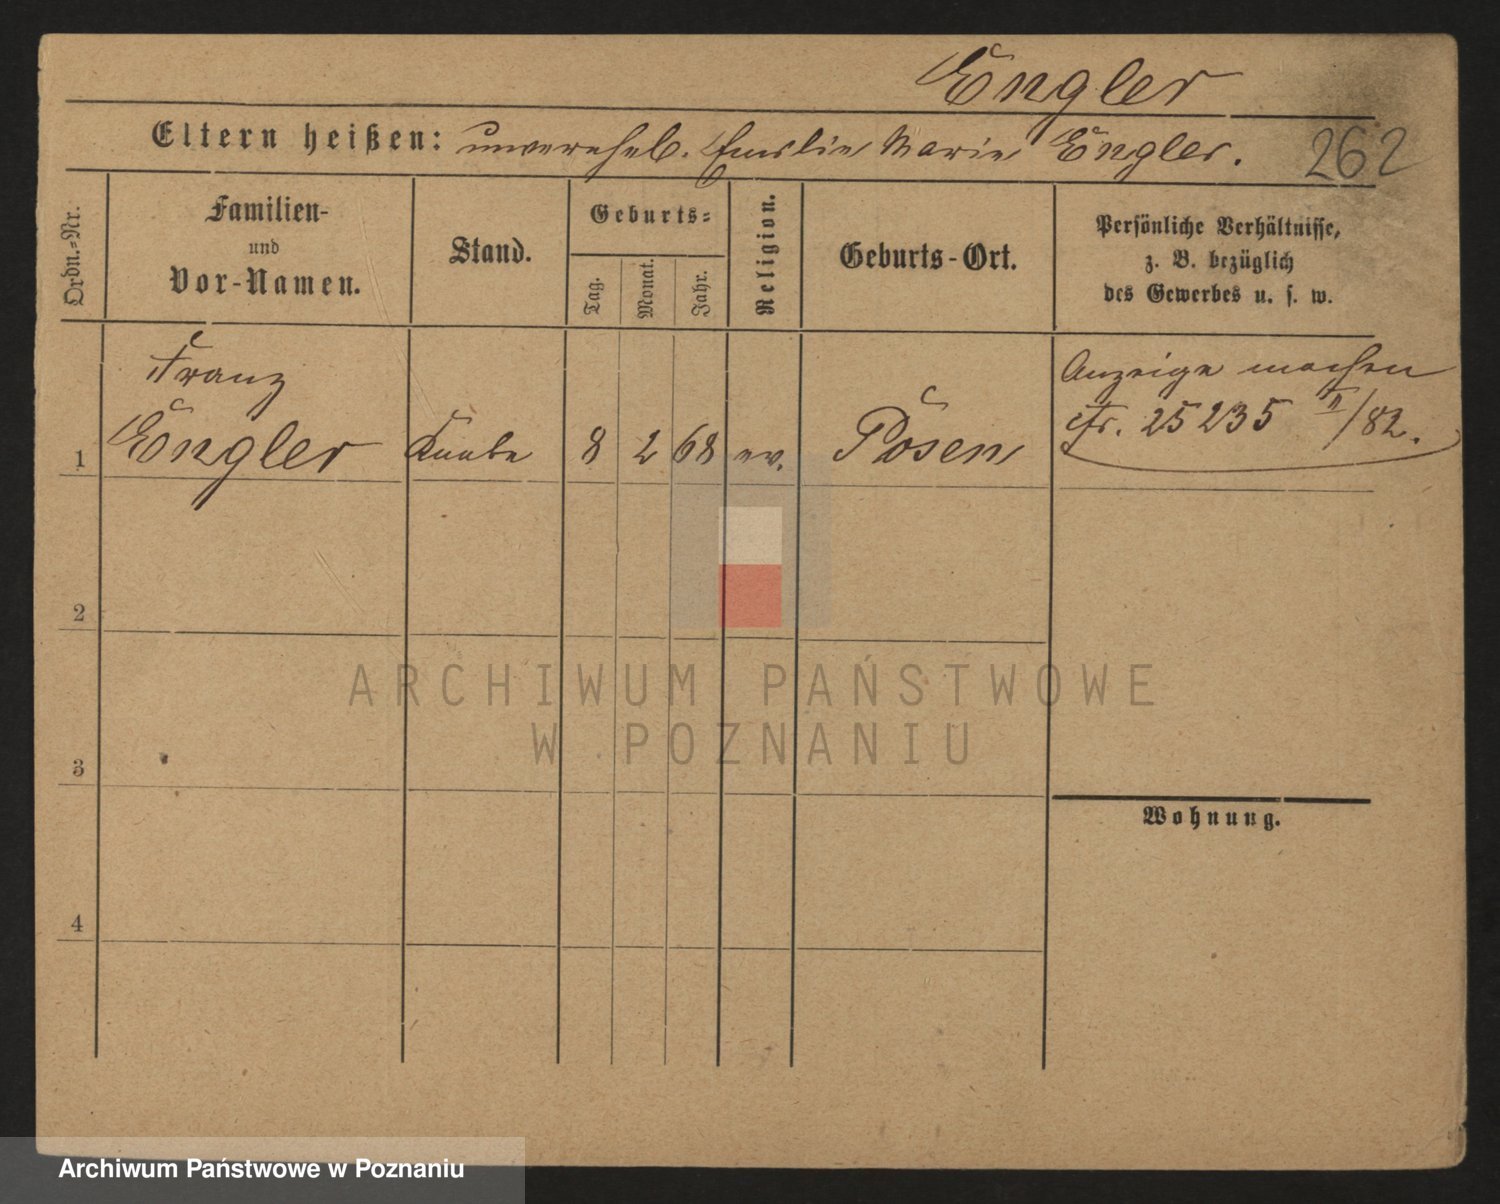 Engler
Eltern heißen: unverehel. Emilie Marie Engler. 262
Ordn.=Nr.
Familien-
und
Vor-Namen.
Stand.
Geburts=
Tag.
Monat.
Jahr.
Religion.
Geburts-Ort.
Persönliche Verhältnisse,
z. B. bezüglich
des Gewerbes u. s. w.
Franz
1 Engler Knabe 8 2 68 ev. Posen
Anzeige machen
Fr. 25235 II/82.
2
3
4
Wohnung.
ARCHIWUM PAŃSTWOWE
W POZNANIU
Archiwum Państwowe w Poznaniu